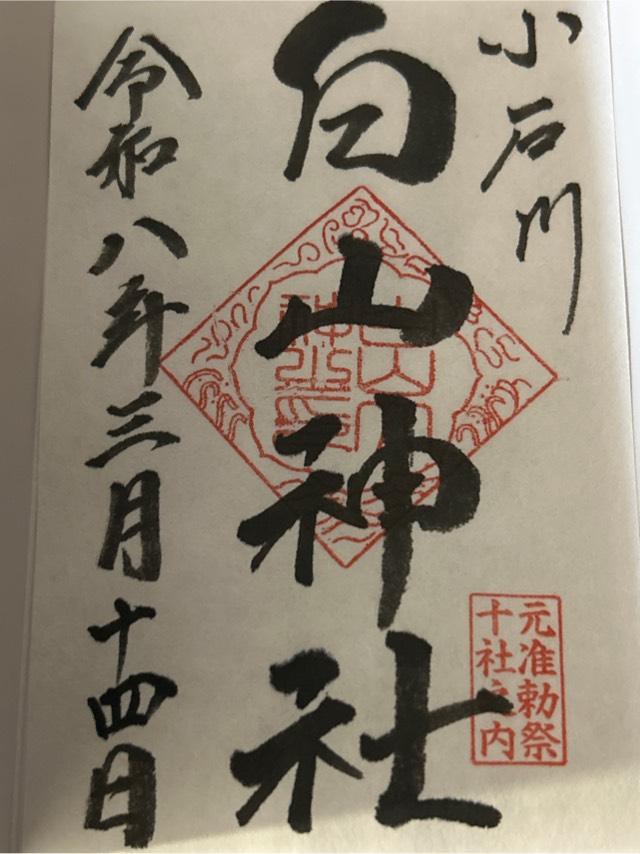 小石川
白山神社
元准勅祭
十社之内
令和八年三月十四日